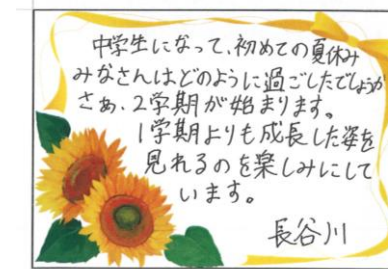 中学生になって、初めての夏休み
みなさんはどのように過ごしたでしょうか
さぁ、2学期が始まります。
1学期よりも成長した姿を
見れるのを楽しみにして
います。
長谷川